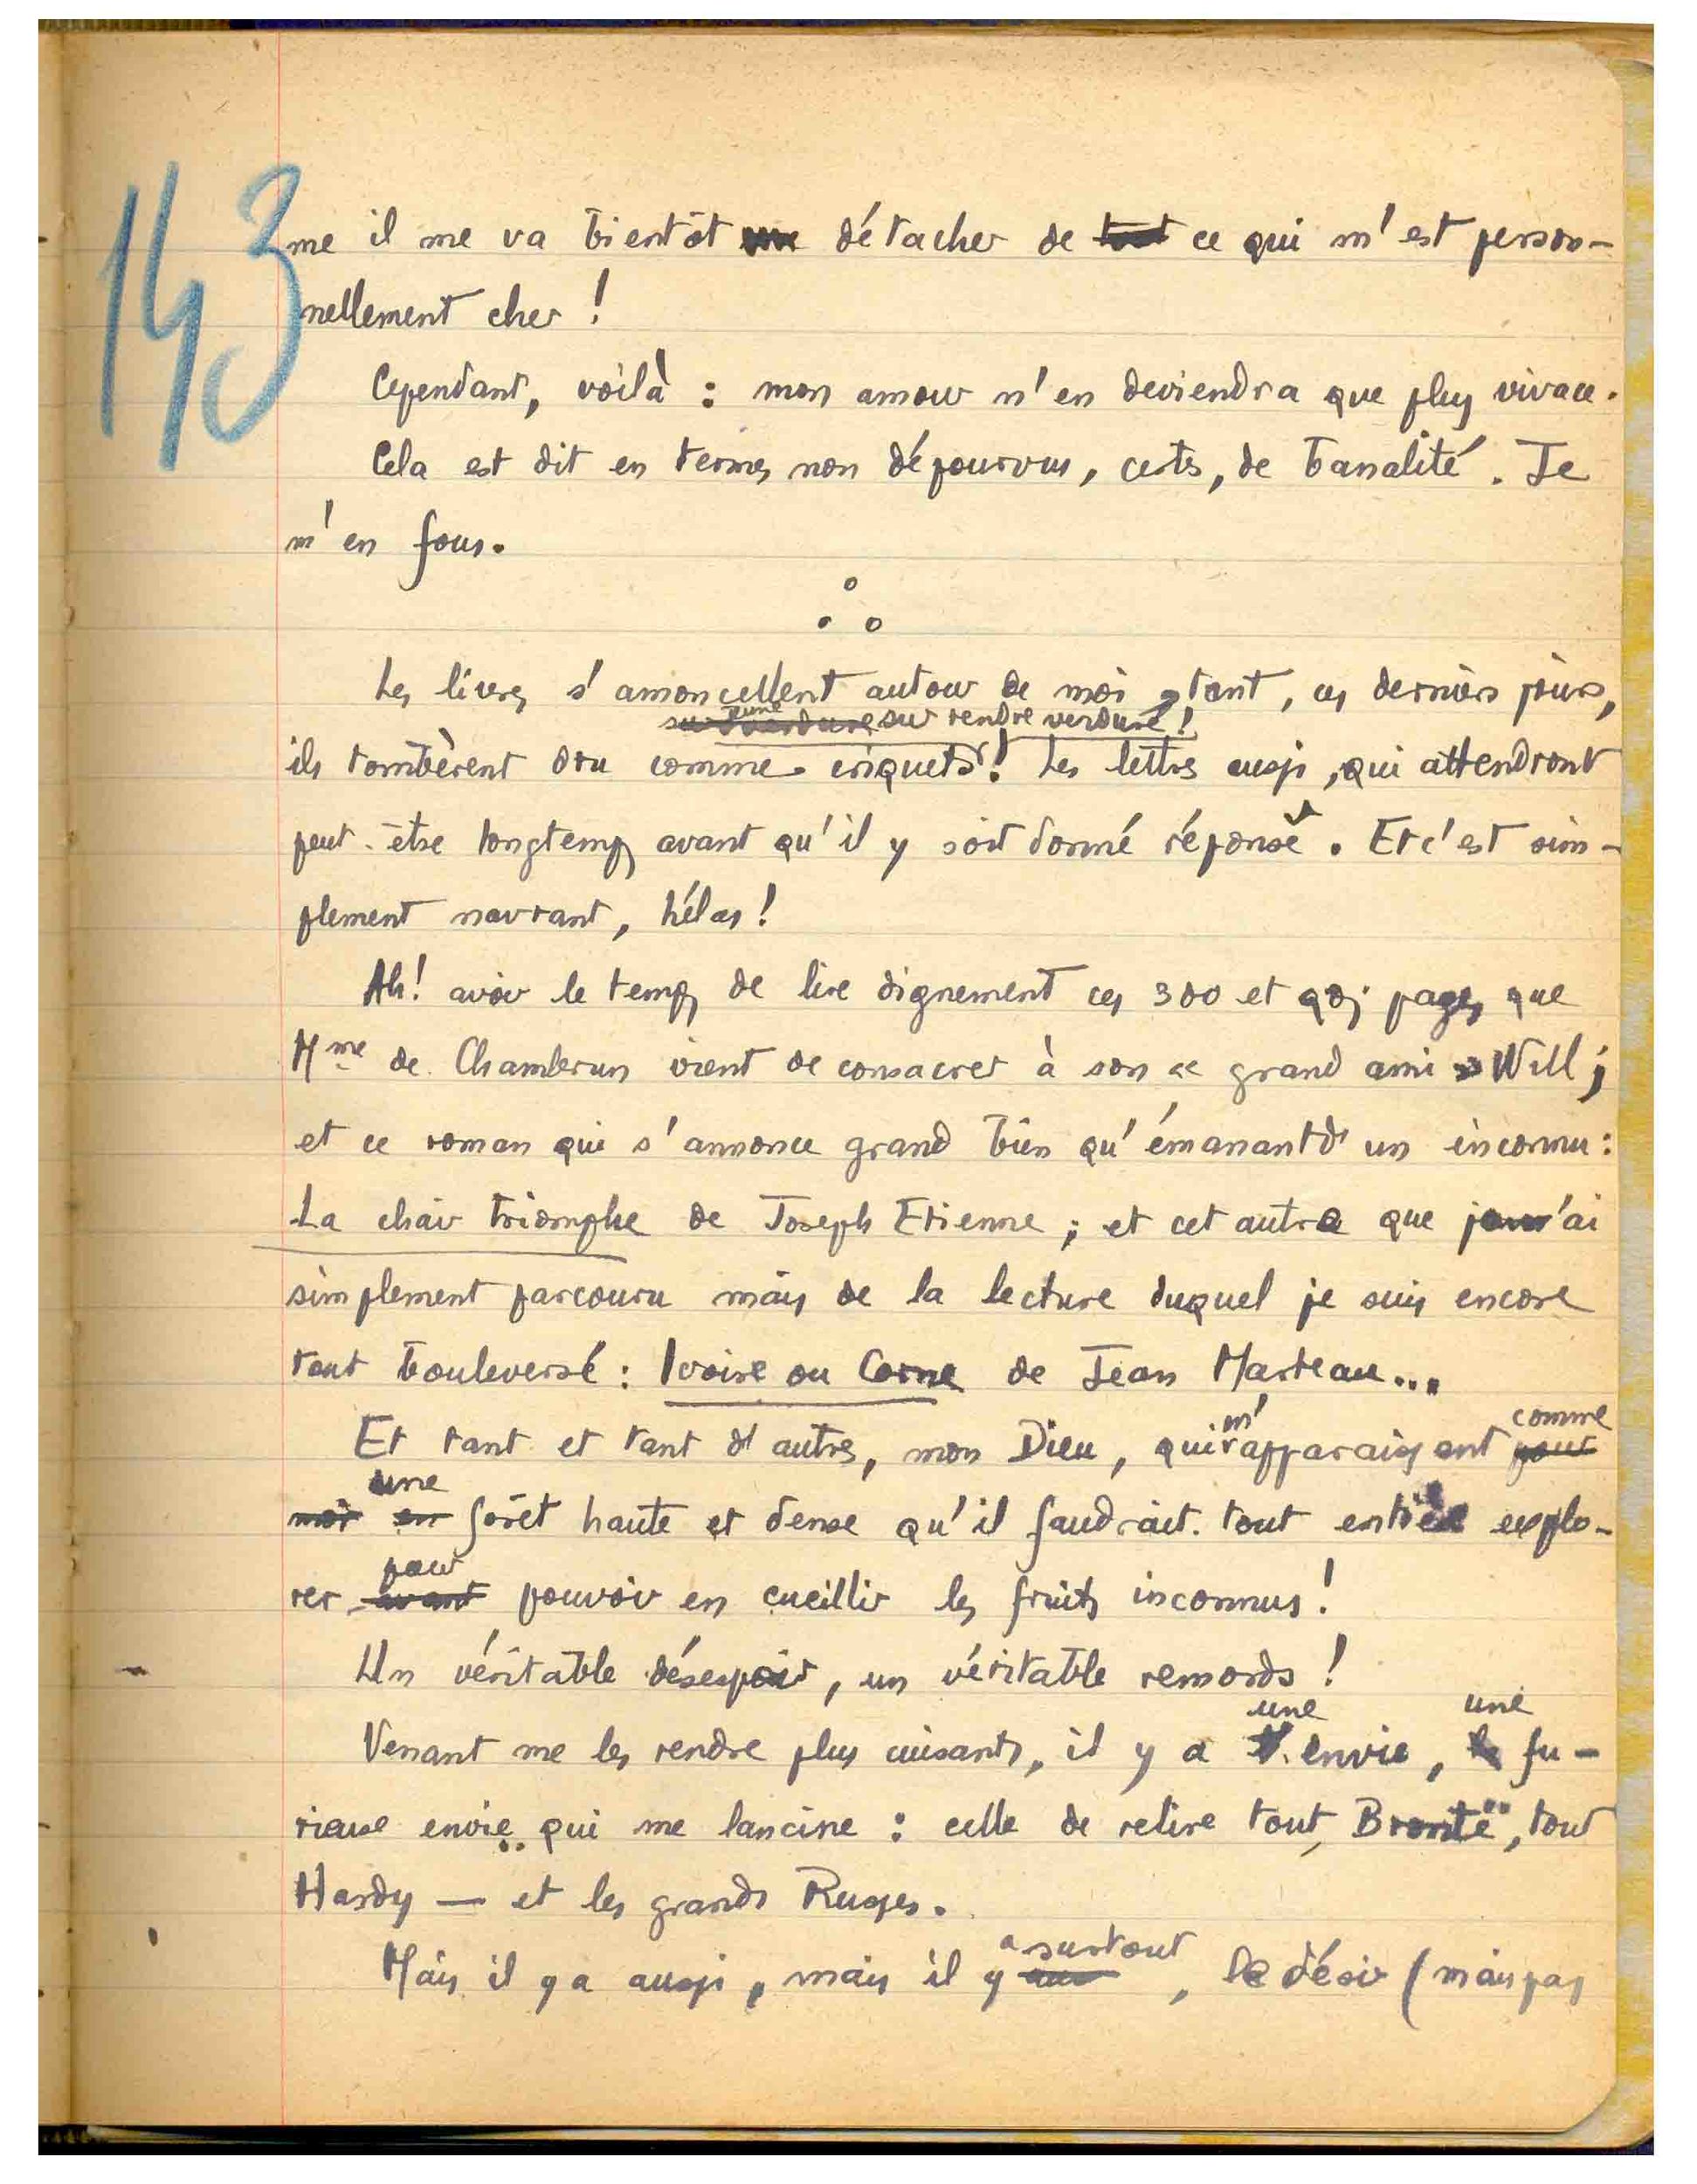 143
me il me va bientôt détacher de tout ce qui m'est person-
nellement cher !
Cependant, voilà : mon amour n'en deviendra que plus vivace.
Cela est dit en termes non dépourvus, certes, de banalité. Je
m'en fous.
Les livres s'amoncellent autour de moi, tant, ces derniers jours,
sur tendre verdure !
ils tombèrent dru comme criquets ! Les lettres aussi, qui attendront
peut-être longtemps avant qu'il y soit donné réponse. Et c'est sim-
plement navrant, hélas !
Ah ! avoir le temps de lire dignement ces 300 et qqs pages que
Mme de Chambrun vient de consacrer à son « grand ami » Will ;
et ce roman qui s'annonce grand bien qu'émanant d'un inconnu :
La chair triomphe de Joseph Etienne ; et cet autre que j'ai
simplement parcouru mais de la lecture duquel je suis encore
tout bouleversé : Ivoire ou Corne de Jean Marteau...
m' comme
Et tant et tant d'autres, mon Dieu, qui apparaissent pour
une
moi en forêt haute et dense qu'il faudrait tout entière explo-
pour
rer avant pouvoir en cueillir les fruits inconnus !
Un véritable désespoir, un véritable remords !
une une
Venant me les rendre plus cuisants, il y a l'envie, la fu-
rieuse envie qui me lancine : celle de relire tout Brontë, tout
Hardy — et les grands Russes.
a surtout
Mais il y a aussi, mais il y, le désir (mais pas